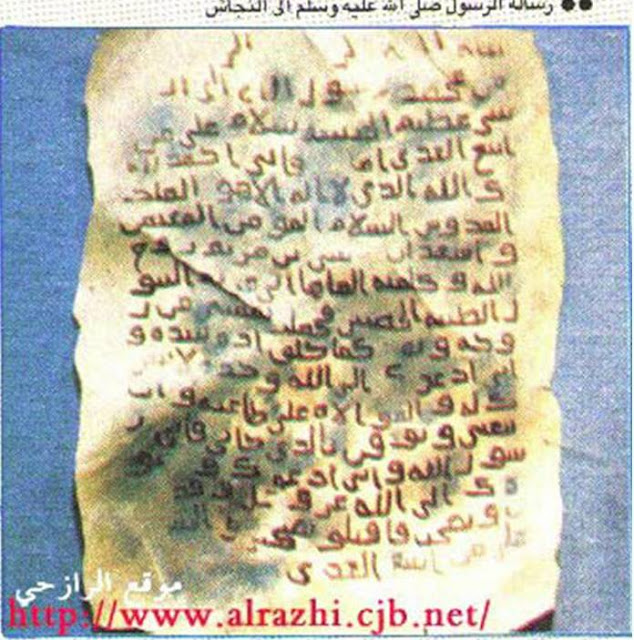 ●● رسالة الرسول صلى الله عليه وسلم الى النجاش
محمد رسول الله الى
شى عظيم الحبشه سلام على من
اتبع الهدى اما فانى احمد الي
ك الله الذى لا اله الا هو الملك
القدوس السلام المومن المهيمن
و اشهد ان عيسى بن مريم روح
الله و كلمته القاها الى مريم البتو
ل الطيبه الحصينه فحملت بعيسى من ر
وحه و نفخه كما خلق ادم بيده و
انى ادعوك الى الله وحده لا شر
يك له و الموالاه على طاعته و ان
تتبعنى و توقن بالذى جانى فانى ر
سول الله و انى ادعوك و جنو
دك الى الله عز و جل و قد
و نصحت فاقبلو نصيحتى
م على من اتبع الهدى
موقع الرازحي
http://www.alrazhi.cjb.net/